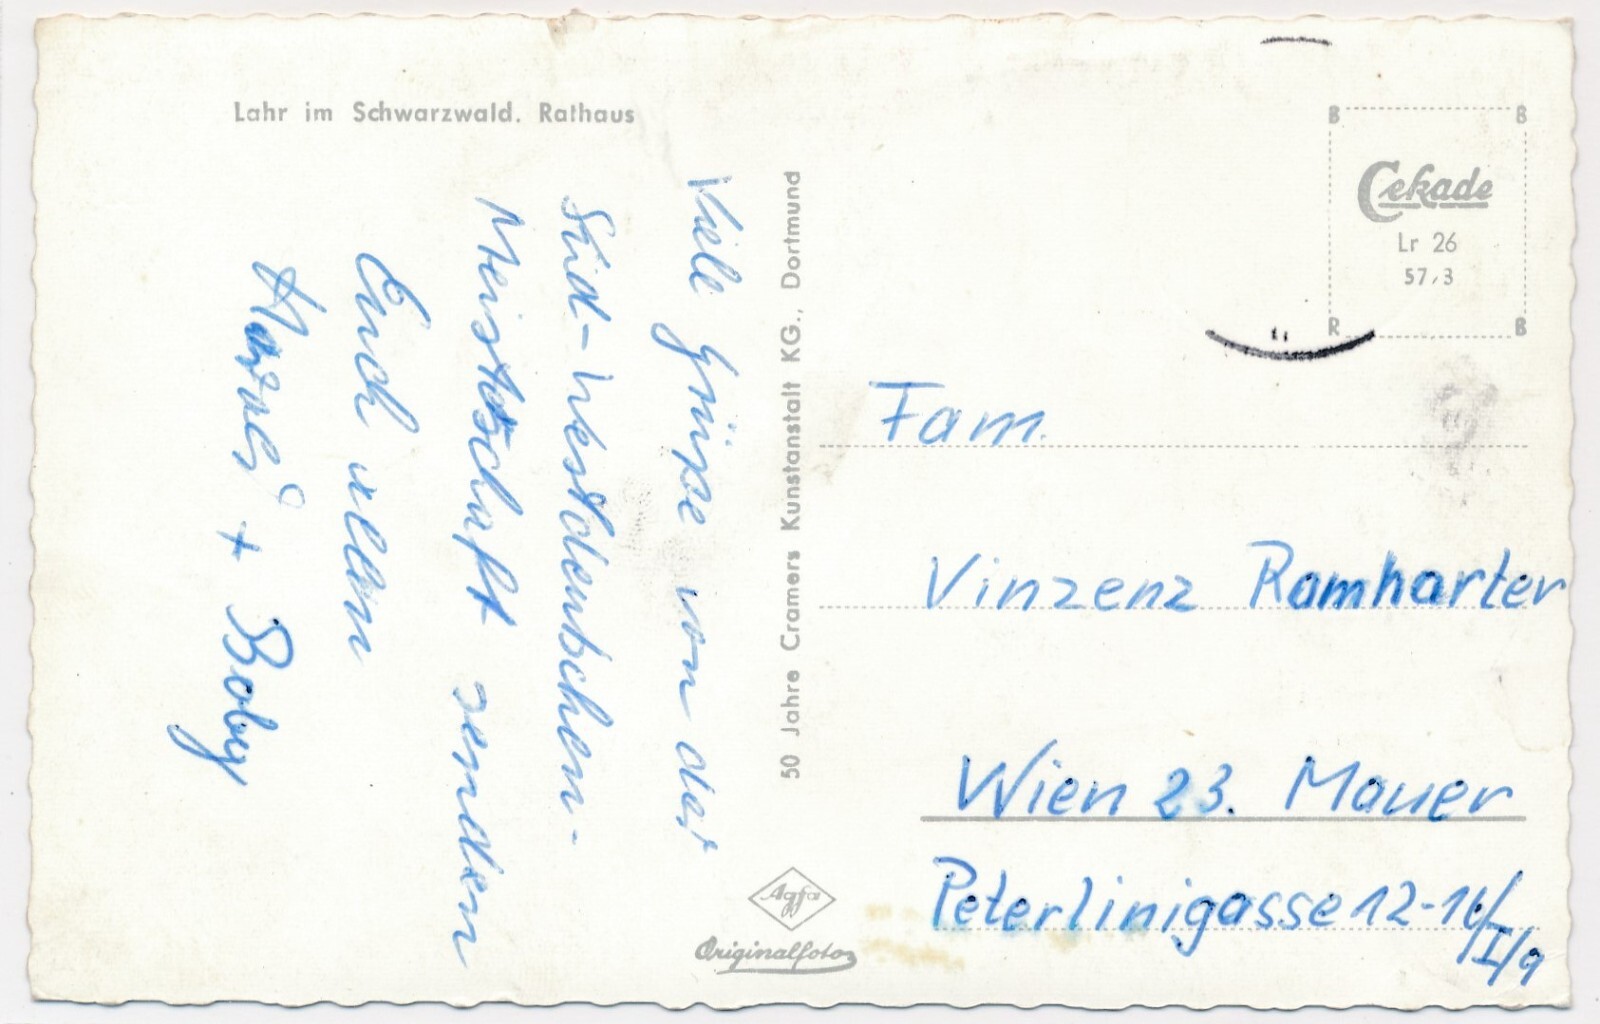 Lahr im Schwarzwald. Rathaus
Viele Grüße von der
Süd-Westdeutschen-
Meisterschaft senden
Euch allen
+ Boby
50 Jahre Cramers Kunstanstalt KG., Dortmund
Agfa
Originalfoto
B B
Cekade
Lr 26
57,3
R B
Fam.
Vinzenz Ramharter
Wien 23. Mauer
Peterlinigasse 12-16/
I/9